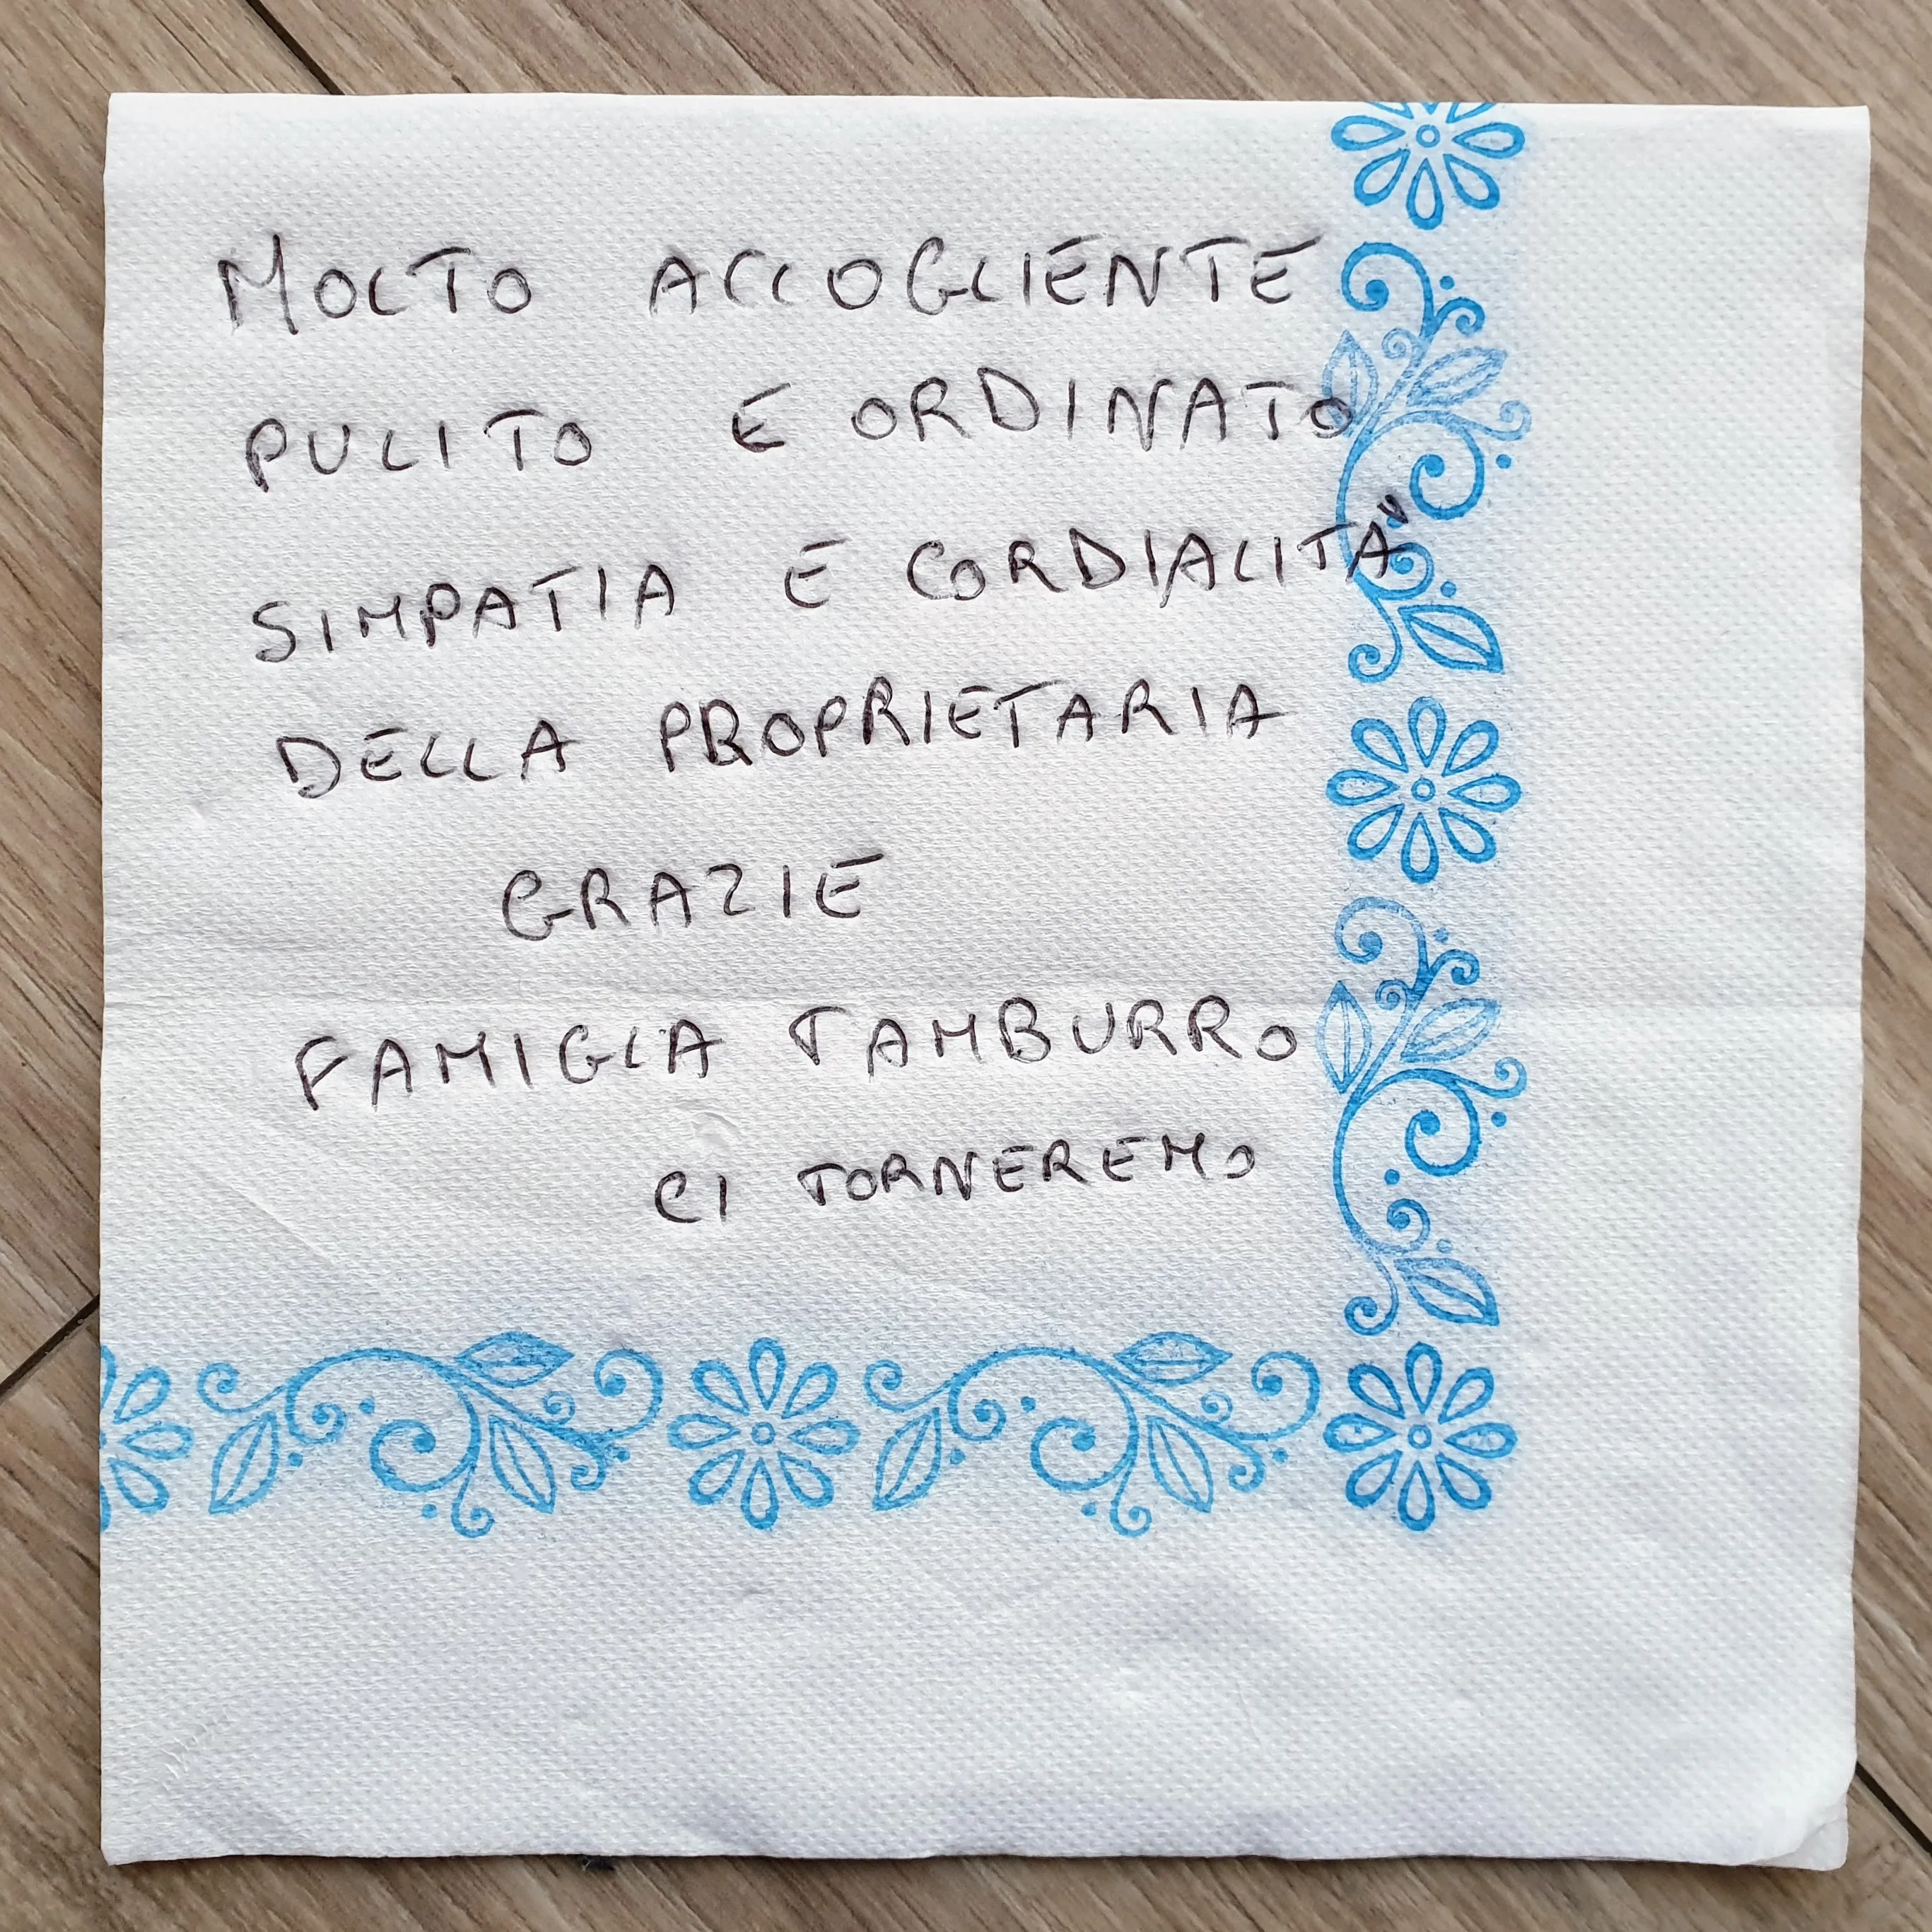 MOLTO ACCOGLIENTE
PULITO E ORDINATO
SIMPATIA E CORDIALITA'
DELLA PROPRIETARIA
GRAZIE
FAMIGLA TAMBURRO
CI TORNEREMO